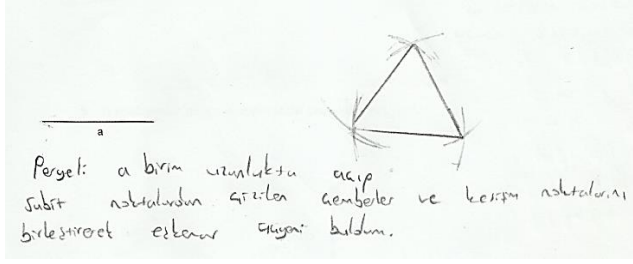 a
Pergeli a birim uzunlukta açıp
sabit noktalardan çizilen çemberler ve kesişim noktalarını
birleştirerek eşkenar üçgeni buldum.